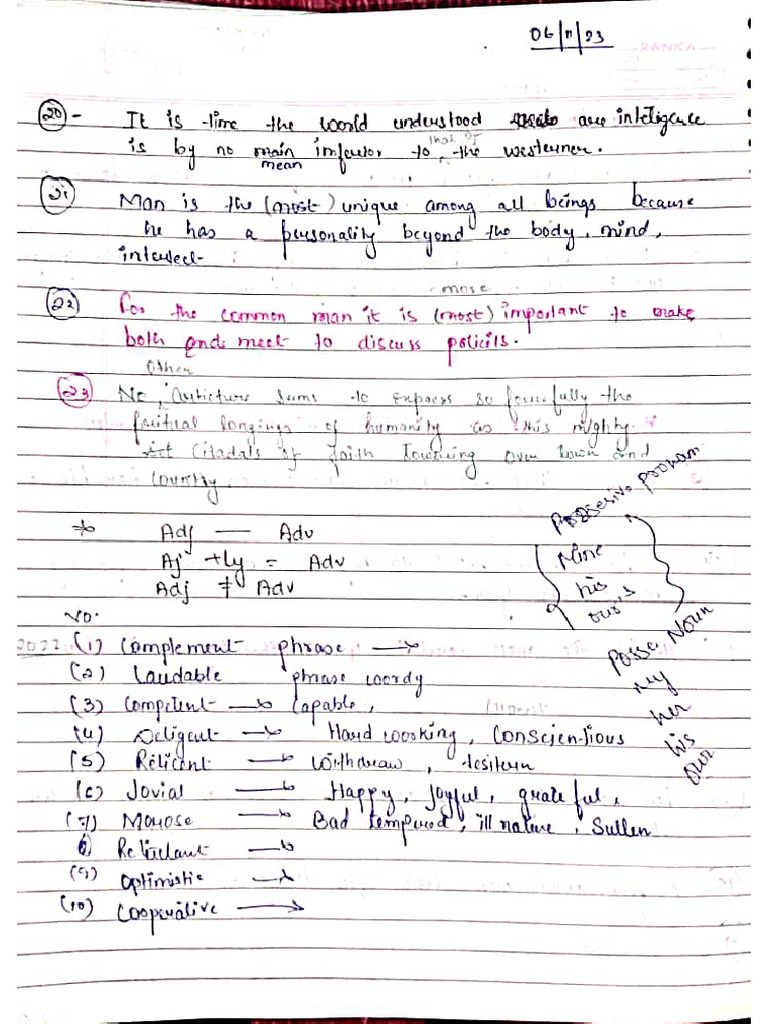 06/11/23
RANKA
(20) - It is time the world understood are inteligence
that of
is by no main inferior to, the westerner.
mean
(21) Man is the (most) unique among all beings because
he has a personality beyond the body, mind,
more
(22) For the common man it is (most) important to make
both ends meet to discuss policils.
Other
(23) No, seems to express so forcefully the
longings of humanity as this mighty
Citadals of faith towering over town and
country.
Adj — Adv
Aj +ly = Adv
Adj ≠ Adv
Possesive pronoun
Mine
his
our's
Posse Noun
my
her
his
our
No.
2022 (1) Complement phrase →
(2) Laudable phrase wordy
(3) Competent → Capable,
(4) → Hard working, Conscientious
(5) → withdraw,
(6) Jovial → Happy, Joyful, grateful,
(7) Morose → Bad tempered, ill nature, Sullen
→
(9) Optimistic →
(10) Cooperative →